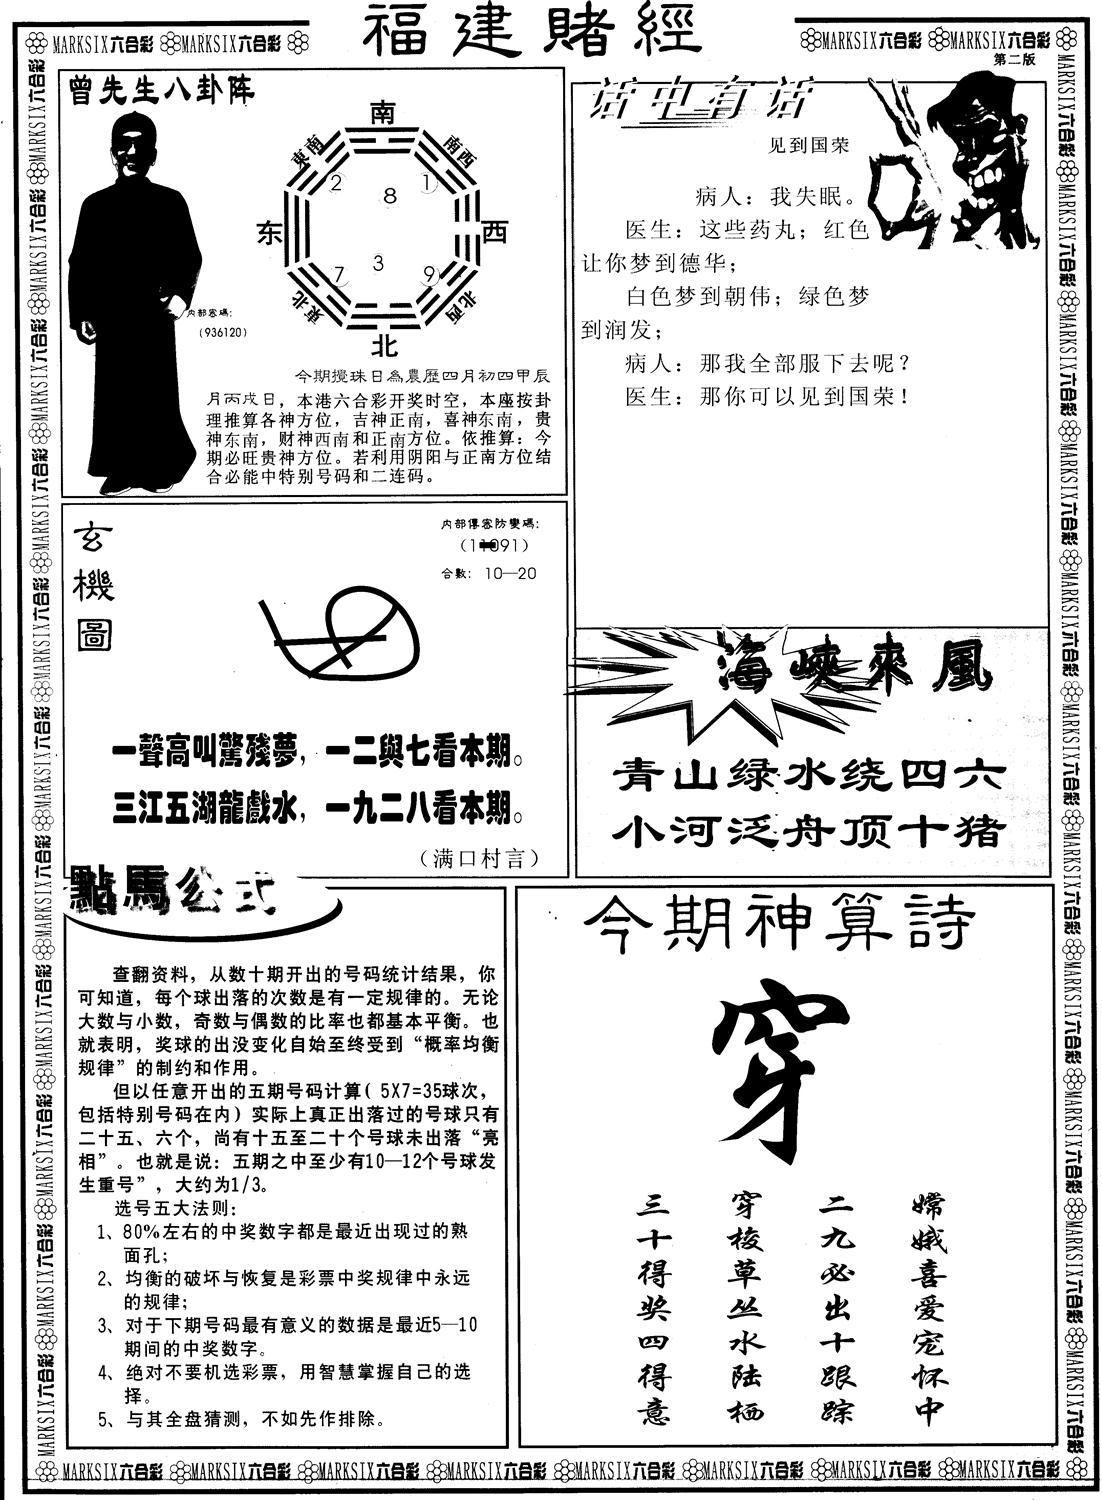 福建賭經
MARKSIX六合彩 MARKSIX六合彩
MARKSIX六合彩 MARKSIX六合彩
第二版
曾先生八卦阵
南
東南
南西
2
8
1
东
西
7
3
9
東北
北西
北
内部密碼:
(936120)
今期搅珠日為農歷四月初四甲辰
月丙戌日，本港六合彩开奖时空，本座按卦
理推算各神方位，吉神正南，喜神东南，贵
神东南，财神西南和正南方位。依推算：今
期必旺贵神方位。若利用阴阳与正南方位结
合必能中特别号码和二连码。
话中有话
见到国荣
病人：我失眠。
医生：这些药丸；红色
让你梦到德华；
白色梦到朝伟；绿色梦
到润发；
病人：那我全部服下去呢？
医生：那你可以见到国荣！
玄機圖
内部傳密防變碼:
(11091)
合數: 10—20
一聲高叫驚殘夢，一二與七看本期。
三江五湖龍戲水，一九二八看本期。
（满口村言）
海峽來風
青山绿水绕四六
小河泛舟顶十猪
點馬公式
查翻资料，从数十期开出的号码统计结果，你
可知道，每个球出落的次数是有一定规律的。无论
大数与小数，奇数与偶数的比率也都基本平衡。也
就表明，奖球的出没变化自始至终受到“概率均衡
规律”的制约和作用。
但以任意开出的五期号码计算( 5X7=35球次，
包括特别号码在内）实际上真正出落过的号球只有
二十五、六个，尚有十五至二十个号球未出落“亮
相”。也就是说：五期之中至少有10—12个号球发
生重号”，大约为1/3。
选号五大法则：
1、80%左右的中奖数字都是最近出现过的熟
面孔；
2、均衡的破坏与恢复是彩票中奖规律中永远
的规律；
3、对于下期号码最有意义的数据是最近5—10
期间的中奖数字。
4、绝对不要机选彩票，用智慧掌握自己的选
择。
5、与其全盘猜测，不如先作排除。
今期神算詩
穿
嫦娥喜爱宠怀中
二九必出十跟踪
穿梭草丛水陆栖
三十得奖四得意
MARKSIX六合彩 MARKSIX六合彩 MARKSIX六合彩 MARKSIX六合彩 MARKSIX六合彩 MARKSIX六合彩 MARKSIX六合彩 MARKSIX六合彩